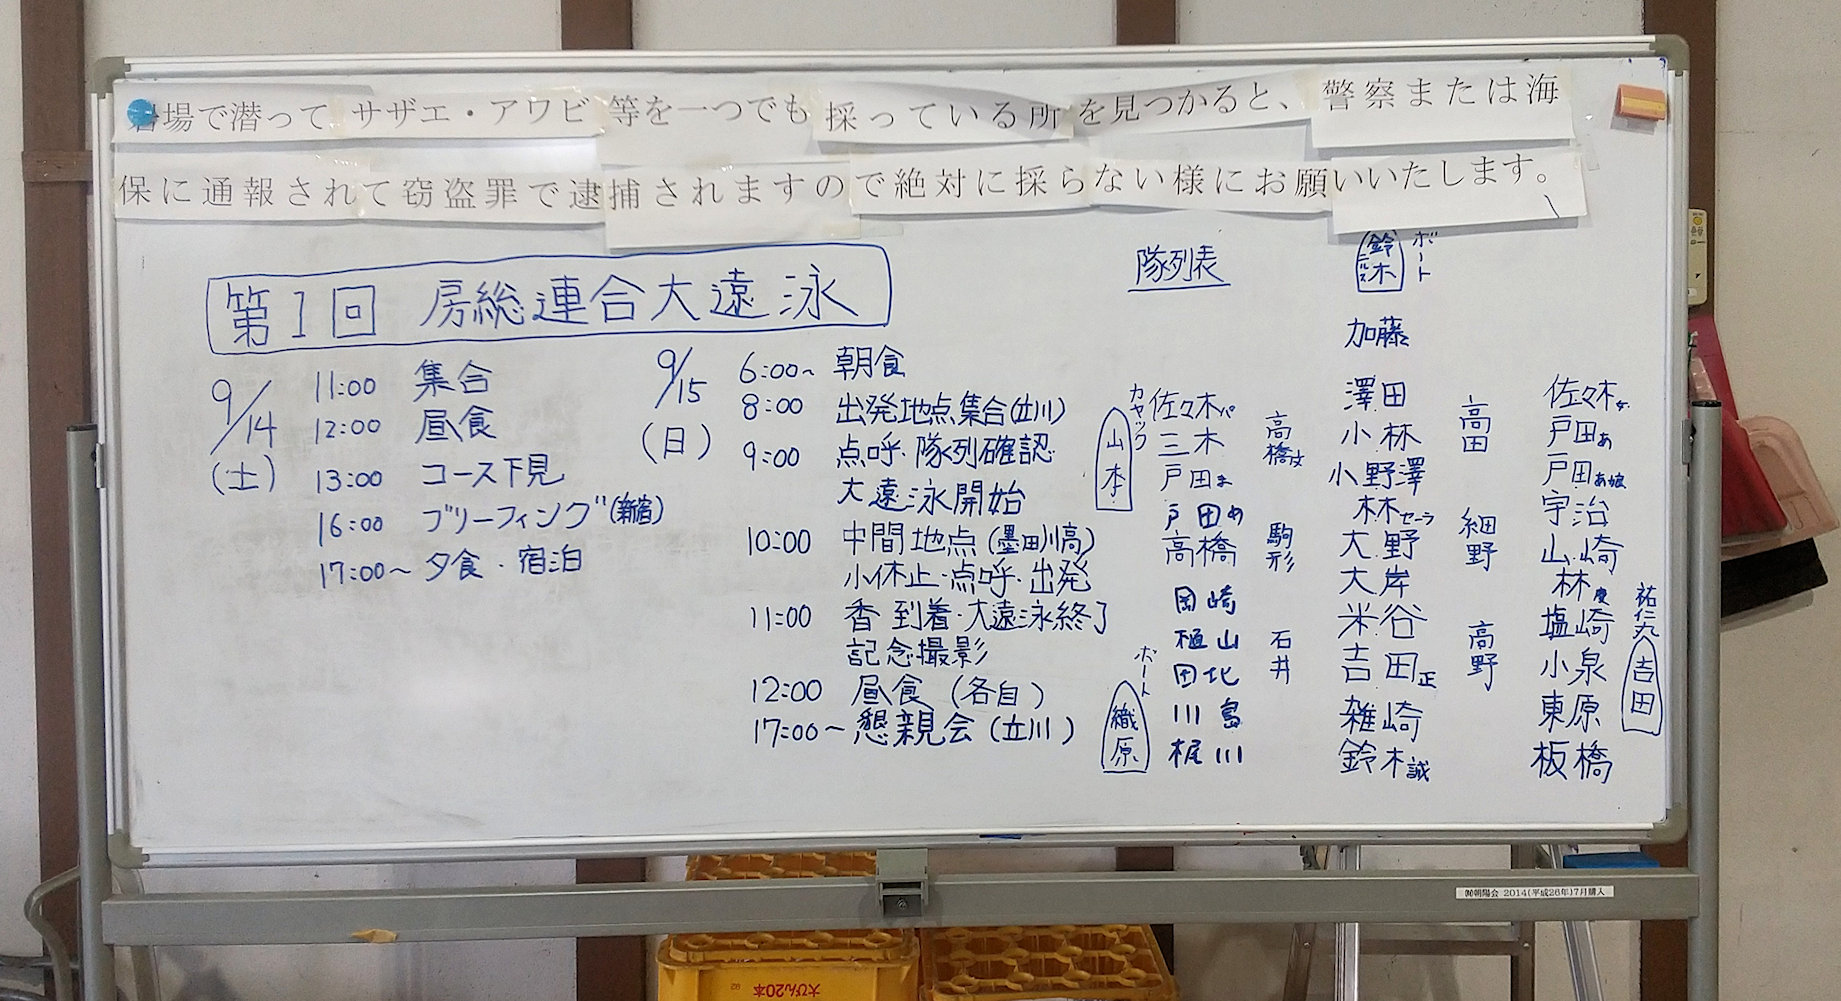 岩場で潜って サザエ・アワビ 等を一つでも 採っている所 を見つかると、警察または海
保に通報されて窃盗罪で逮捕されますので絶対に採らない様にお願いいたします。
第1回 房総連合大遠泳
9/14
(土)
11:00 集合
12:00 昼食
13:00 コース下見
16:00 ブリーフィング(新宿)
17:00〜 夕食・宿泊
9/15
(日)
6:00〜 朝食
8:00 出発地点集合(立川)
9:00 点呼・隊列確認
大遠泳開始
10:00 中間地点(墨田川高)
小休止・点呼・出発
11:00 香 到着・大遠泳終了
記念撮影
12:00 昼食(各自)
17:00〜懇親会(立川)
隊列表
ボート
鈴木
加藤
カヤック
山本
佐々木パ
三木
戸田ま
戸田め
高橋
岡崎
樋山
田北
川島
梶川
ボート
織原
高橋女
駒形
石井
澤田
小林
小野澤
林セーラ
大野
大岸
米谷
吉田正
雑崎
鈴木誠
高田
細野
高野
佐々木
戸田あ
戸田あ娘
宇治
山崎
林慶
塩崎
小泉
東原
板橋
祐仁丸
吉田
㈶朝陽会 2014(平成26年)7月購入
大びん20本